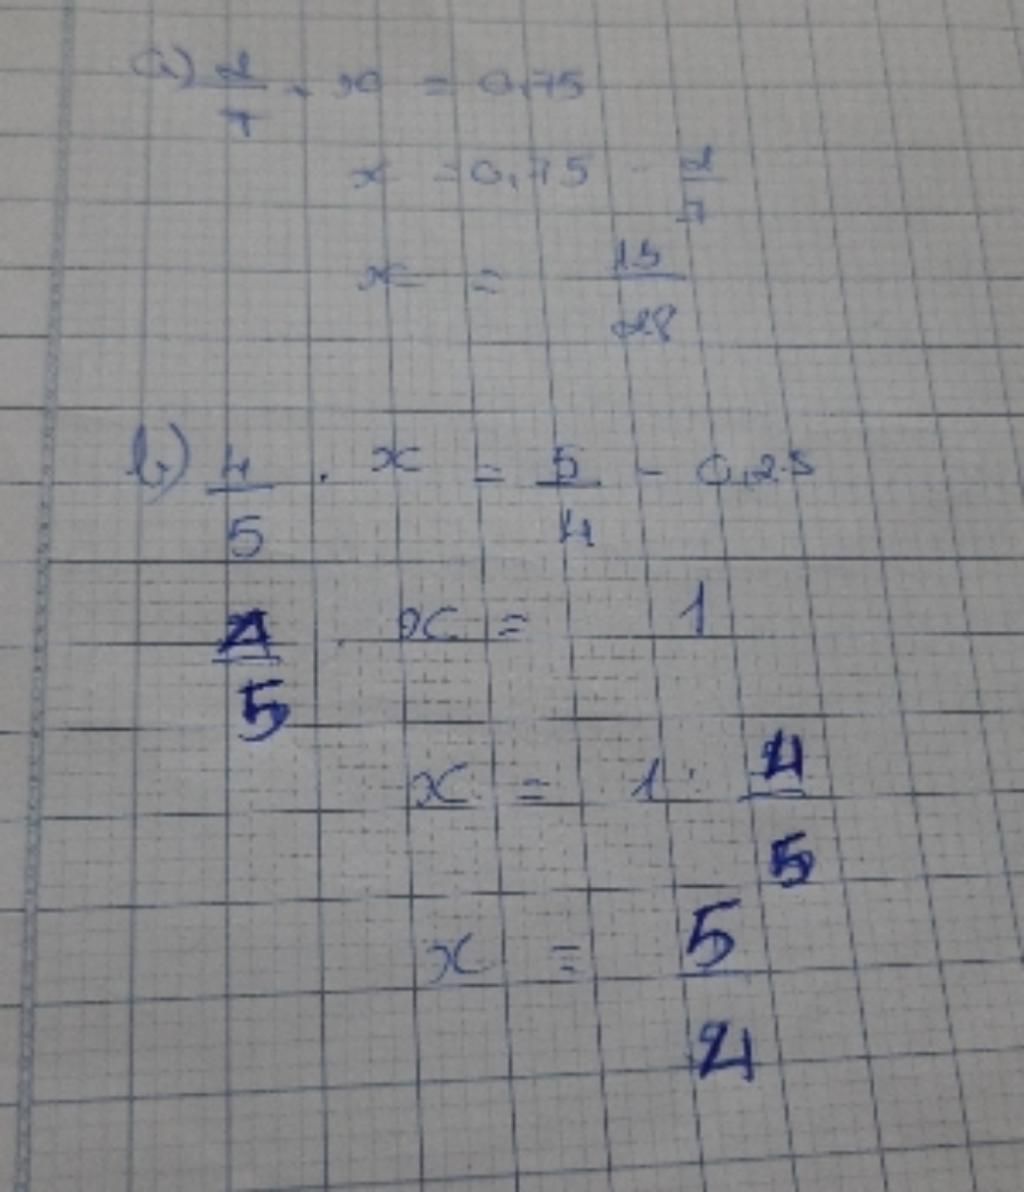 a) 2/7 + x = 0,75
x = 0,75 - 2/7
x = 13/28
b) 4/5 . x = 5/4 - 0,25
4/5 . x = 1
x = 1 : 4/5
x = 5/4